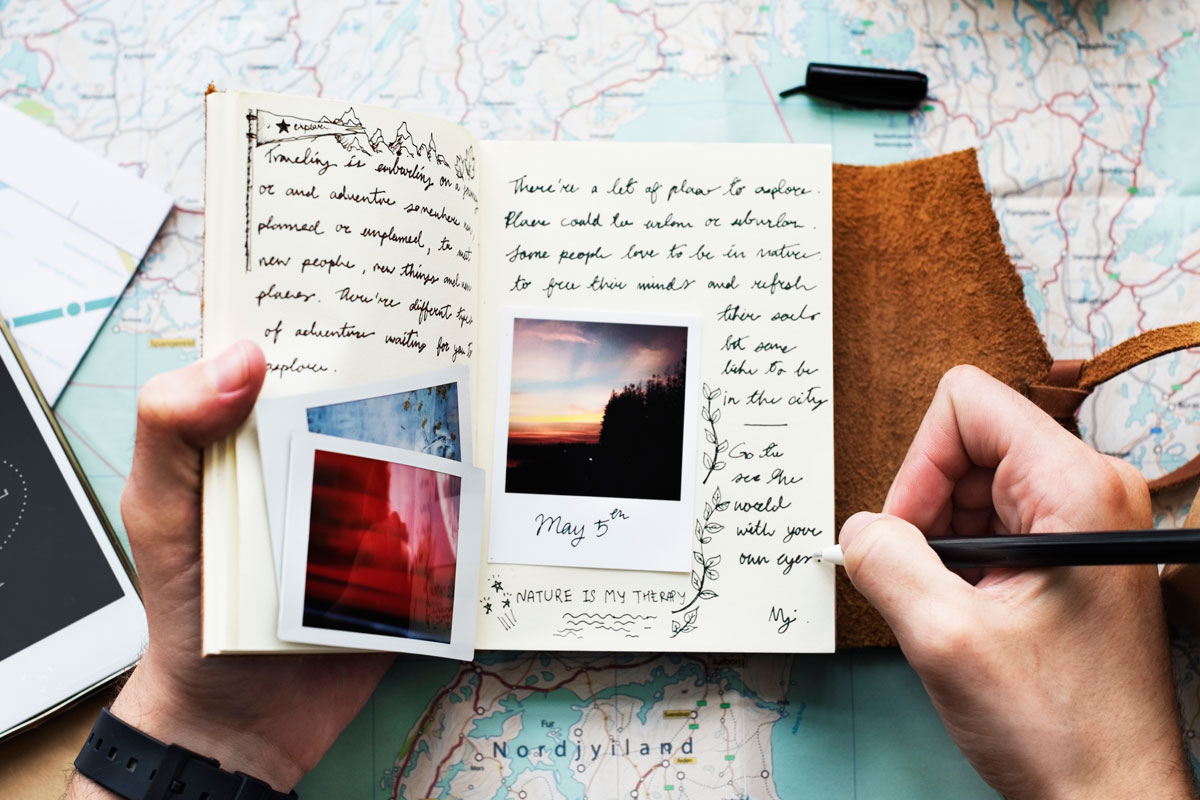 explore
Traveling is embarking on a
or and adventure somewhere
planned or unplanned, to meet
new people, new things and new
places. There're different types
of adventure waiting for you to
explore.
There're a lot of places to explore.
Places could be urban or suburban.
Some people love to be in nature
to free their minds and refresh
their souls
but some
like to be
in the city
Go to
see the
world
with your
own eyes
May 5th
NATURE IS MY THERAPY
Mj.
Fur
Nordjylland
Aalborg